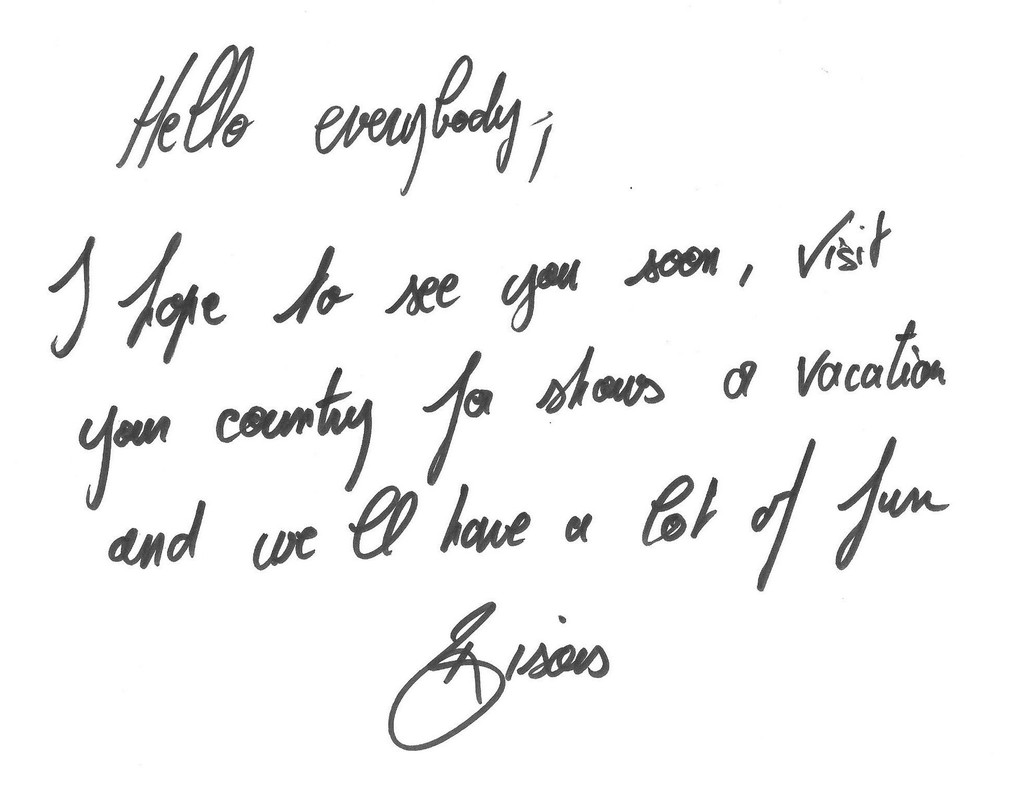 Hello everybody,
I hope to see you soon, visit
your country for shows a vacation
and we ll have a lot of fun